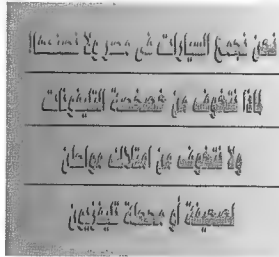 نحن نجمع السيارات في مصر ولا نصنعها!
لماذا نتخوف من خصخصة التليفونات
ولا نتخوف من امتلاك مواطن
لصحيفة أو محطة تليفزيون